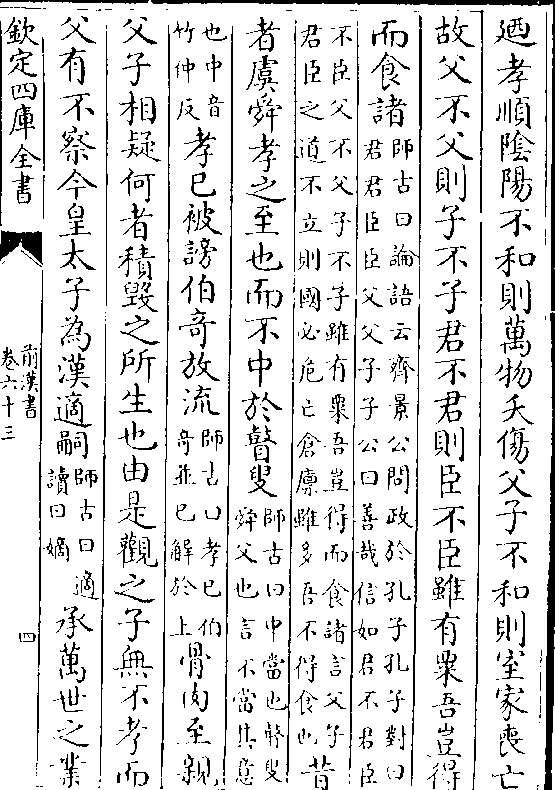 迺孝順陰陽不和則萬物夭傷父子不和則室家喪亡
故父不父則子不子君不君則臣不臣雖有粟吾豈得
而食諸
師古曰論語云齊景公問政於孔子孔子對曰
君君臣臣父父子子公曰善哉信如君不君臣
不臣父不父子不子雖有粟吾豈得而食諸言父子
君臣之道不立則國必危亡倉廪雖多吾不得食也
昔
者虞舜孝之至也而不中於瞽叟
師古曰中當也瞽叟
舜父也言不當其意
也中音
竹仲反
孝已被謗伯奇放流
師古曰孝已伯
奇並已解於上
骨肉至親
父子相疑何者積毀之所生也由是觀之子無不孝而
父有不察今皇太子為漢適嗣
師古曰適
讀曰嫡
承萬世之業
欽定四庫全書
前漢書
卷六十三
四